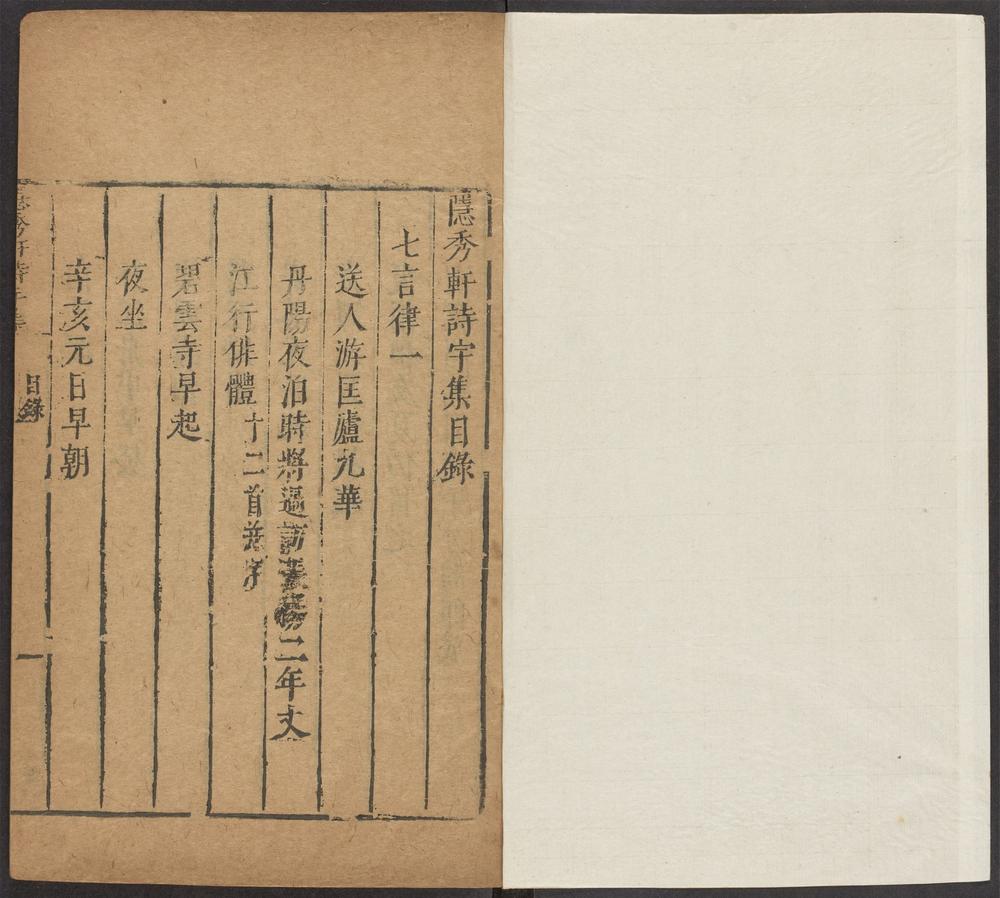 隱秀軒詩宇集目錄
七言律一
送人游匡廬九華
丹陽夜泊時將過訪二年丈
江行俳體十二首並序
碧雲寺早起
夜坐
辛亥元日早朝
隱秀軒詩宇集
目錄
一